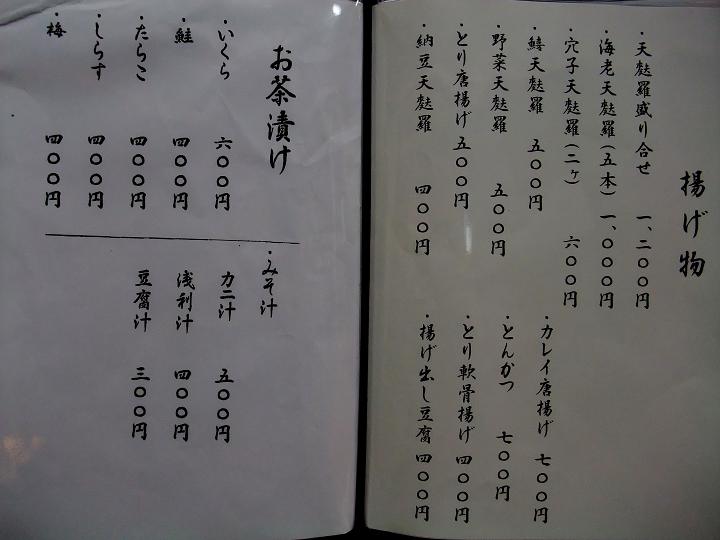 揚げ物
・天麩羅盛り合せ 一、二〇〇円
・海老天麩羅(五本) 一、〇〇〇円
・穴子天麩羅(二ヶ) 六〇〇円
・鱚天麩羅 五〇〇円
・野菜天麩羅 五〇〇円
・とり唐揚げ 五〇〇円
・納豆天麩羅 四〇〇円
・カレイ唐揚げ 七〇〇円
・とんかつ 七〇〇円
・とり軟骨揚げ 四〇〇円
・揚げ出し豆腐 四〇〇円
お茶漬け
・いくら 六〇〇円
・鮭 四〇〇円
・たらこ 四〇〇円
・しらす 四〇〇円
・梅 四〇〇円
・みそ汁
カニ汁 五〇〇円
浅利汁 四〇〇円
豆腐汁 三〇〇円